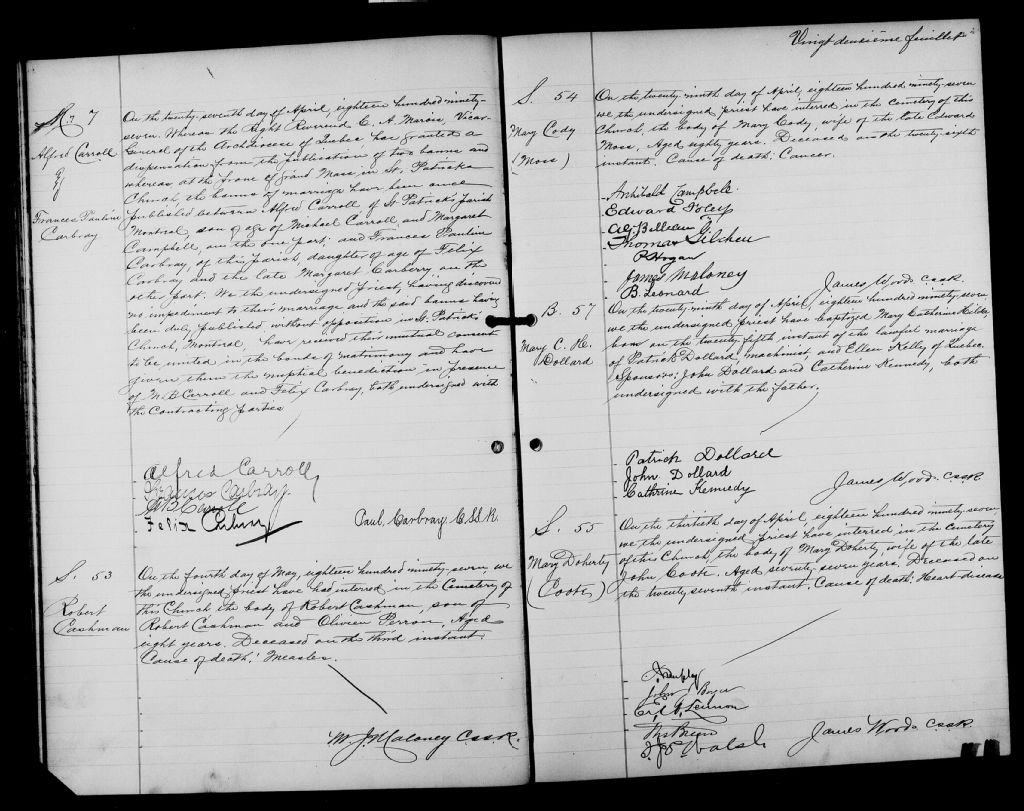 M. 7
Alfred Carroll
&
Frances Pauline
Carbray
On the twenty-seventh day of April, eighteen hundred ninety-
seven. Whereas the Right Reverend C. A. Marois, Vicar-
General of the Archdiocese of Quebec has granted a
dispensation from the publication of two banns and
whereas at the prone of grand Mass in St. Patrick's
Church, the banns of marriage have been once
published between Alfred Carroll of St Patrick's parish
Montreal, son of age of Michael Carroll and Margaret
Campbell on the one part; and Frances Pauline
Carbray, of this parish, daughter of age of Felix
Carbray and the late Margaret Carberry on the
other part. We the undersigned priest, having discovered
no impediment to their marriage and the said banns having
been duly published without opposition in St. Patrick's
Church, Montreal, have received their mutual consent
to be united in the bonds of matrimony and have
given them the nuptial benediction in presence
of W. B. Carroll and Felix Carbray, both undersigned with
the Contracting parties
Alfred Carroll
Frances Carbray
W B Carroll
Felix Carbray
Paul Carbray C.SS.R.
S. 53
Robert
Cashman
On the fourth day of May, eighteen hundred ninety-seven, we
the undersigned priest have had interred in the Cemetery of
this Church the body of Robert Cashman, son of
Robert Cashman and Olivien Perron, Aged
eight years. Deceased on the third instant.
Cause of death: Measles.
M. J. Maloney C.SS.R.
Vingt deuxième feuillet
S. 54
Mary Cody
(Moss)
On the twenty-ninth day of April, eighteen hundred ninety-seven
we the undersigned priest have interred in the cemetery of this
Church, the body of Mary Cody, wife of the late Edward
Moss, Aged eighty years. Deceased on the twenty-eighth
instant. Cause of death: Cancer.
Archibald Campbell
Edward Foley
Thomas Gilchen
P. Hogan
James Maloney
B. Leonard
James Woods C.SS.R.
B. 57
Mary C. H.
Dollard
On the twenty-ninth day of April, eighteen hundred ninety-seven
we the undersigned priest have baptized Mary Catherine Hilda,
born on the twenty-fifth instant of the lawful marriage
of Patrick Dollard, machinist and Ellen Kelly of Quebec.
Sponsors: John Dollard and Catherine Kennedy, both
undersigned with the father.
Patrick Dollard
John Dollard
Cathrine Kennedy
James Woods C.SS.R.
S. 55
Mary Doherty
(Coote)
On the thirtieth day of April, eighteen hundred ninety-seven
we the undersigned priest have interred in the Cemetery
of this Church, the body of Mary Doherty, wife of the late
John Coote, Aged seventy-seven years, Deceased on
the twenty-seventh instant. Cause of death: Heart-disease
John Boyce
Walsh
James Woods C.SS.R.